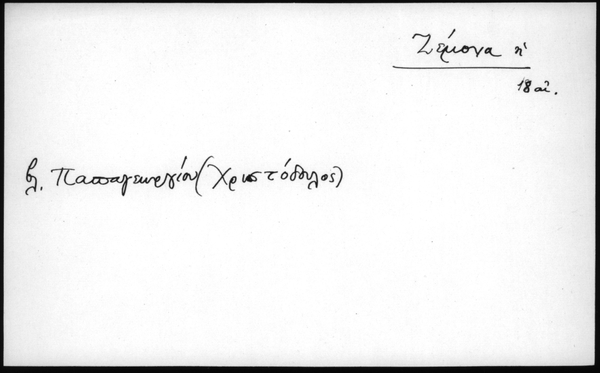 Ζέρμονα ή
18 αἰ.
βλ. Παπαγεωργίου (Χριστόδουλος)